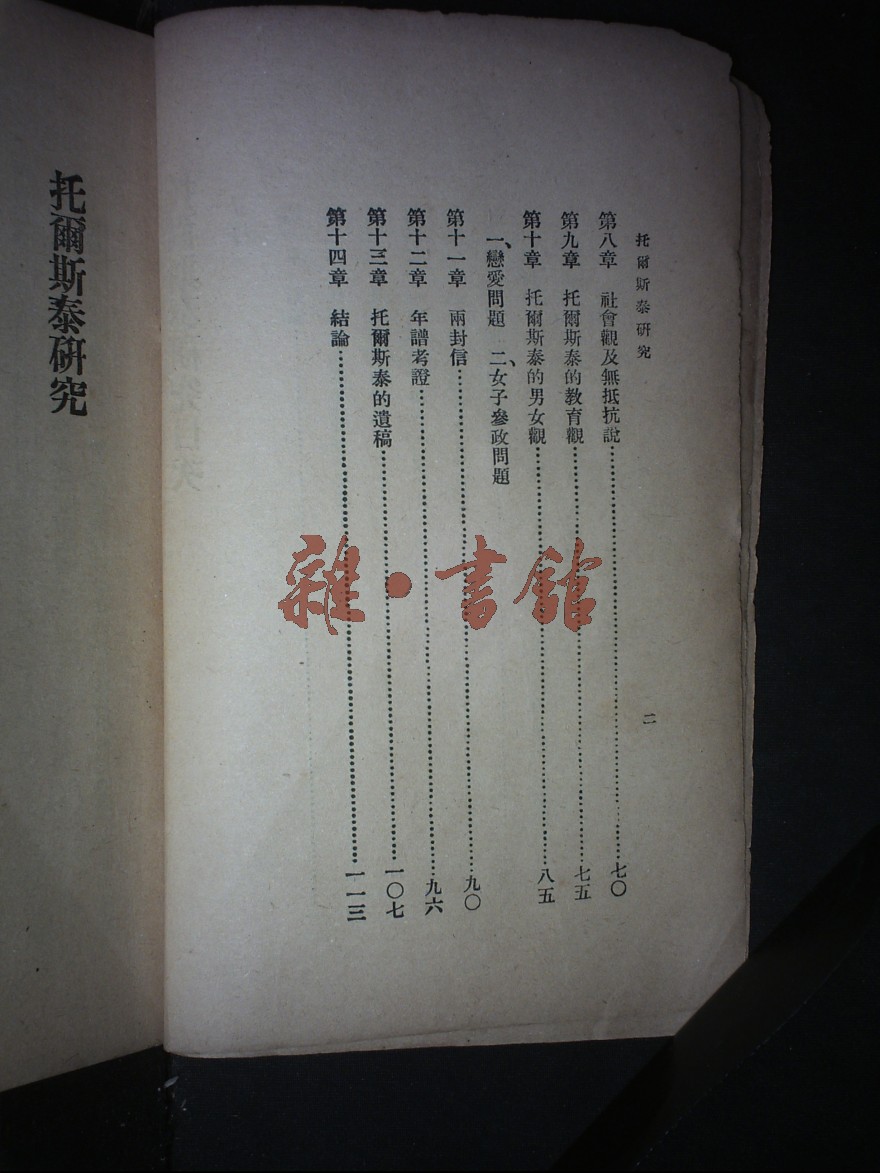 托爾斯泰研究
二
第八章 社會觀及無抵抗說……七〇
第九章 托爾斯泰的教育觀……七五
第十章 托爾斯泰的男女觀……八五
一、戀愛問題 二、女子參政問題
第十一章 兩封信……九〇
第十二章 年譜考證……九六
第十三章 托爾斯泰的遺稿……一〇七
第十四章 結論……一一三
托爾斯泰研究
雜·書館